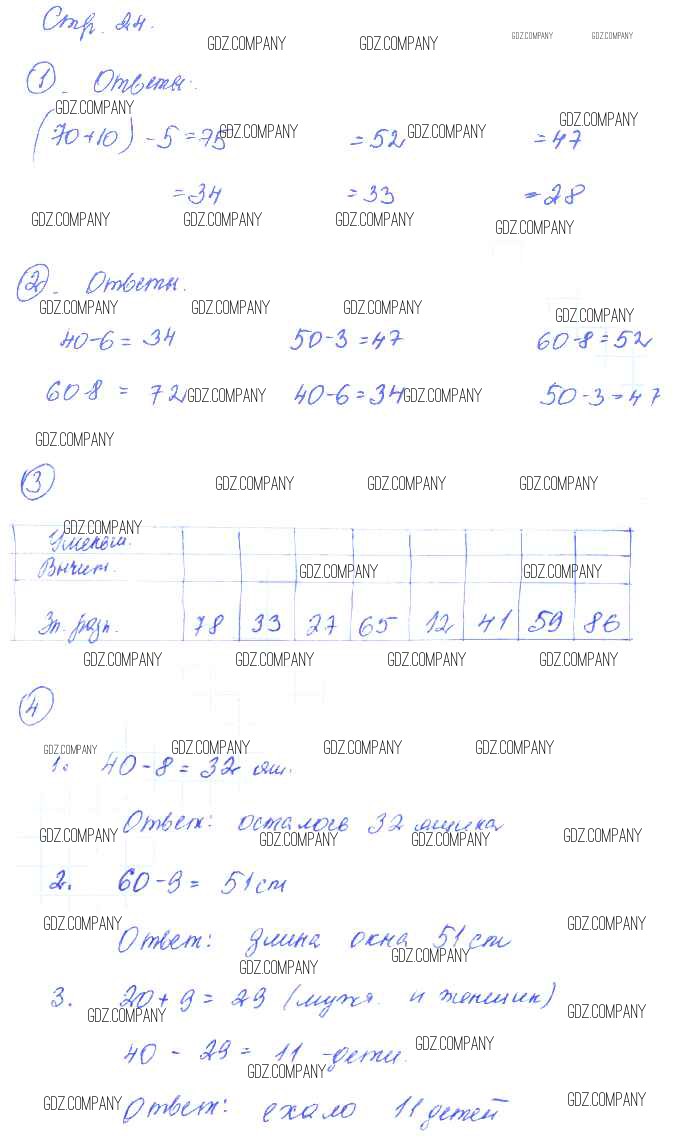 Стр. 24.
GDZ.COMPANY GDZ.COMPANY GDZ.COMPANY GDZ.COMPANY
1. Ответы.
GDZ.COMPANY GDZ.COMPANY
(70+10) - 5 = 75 GDZ.COMPANY = 52 GDZ.COMPANY = 47
= 34 = 33 = 28
GDZ.COMPANY GDZ.COMPANY GDZ.COMPANY GDZ.COMPANY
2. Ответы.
GDZ.COMPANY GDZ.COMPANY GDZ.COMPANY GDZ.COMPANY
40-6 = 34 50-3 = 47 60-8 = 52
60 8 = 72 GDZ.COMPANY 40-6 = 34 GDZ.COMPANY 50-3 = 47
GDZ.COMPANY
3 GDZ.COMPANY GDZ.COMPANY GDZ.COMPANY
GDZ.COMPANY
Уменьш.
Вычит. GDZ.COMPANY GDZ.COMPANY
Зн. разн. 78 33 27 65 12 41 59 86
GDZ.COMPANY GDZ.COMPANY GDZ.COMPANY GDZ.COMPANY
4
GDZ.COMPANY GDZ.COMPANY GDZ.COMPANY GDZ.COMPANY
1. 40-8 = 32 ящ.
Ответ: осталось 32 ящика
GDZ.COMPANY GDZ.COMPANY GDZ.COMPANY GDZ.COMPANY
2. 60-9 = 51 cm
GDZ.COMPANY GDZ.COMPANY
Ответ: длина окна 51 cm
GDZ.COMPANY GDZ.COMPANY
3. 20+9 = 29 (мужч. и женщин)
GDZ.COMPANY GDZ.COMPANY
40 - 29 = 11 - дети. GDZ.COMPANY
GDZ.COMPANY
GDZ.COMPANY Ответ: ехало 11 детей GDZ.COMPANY